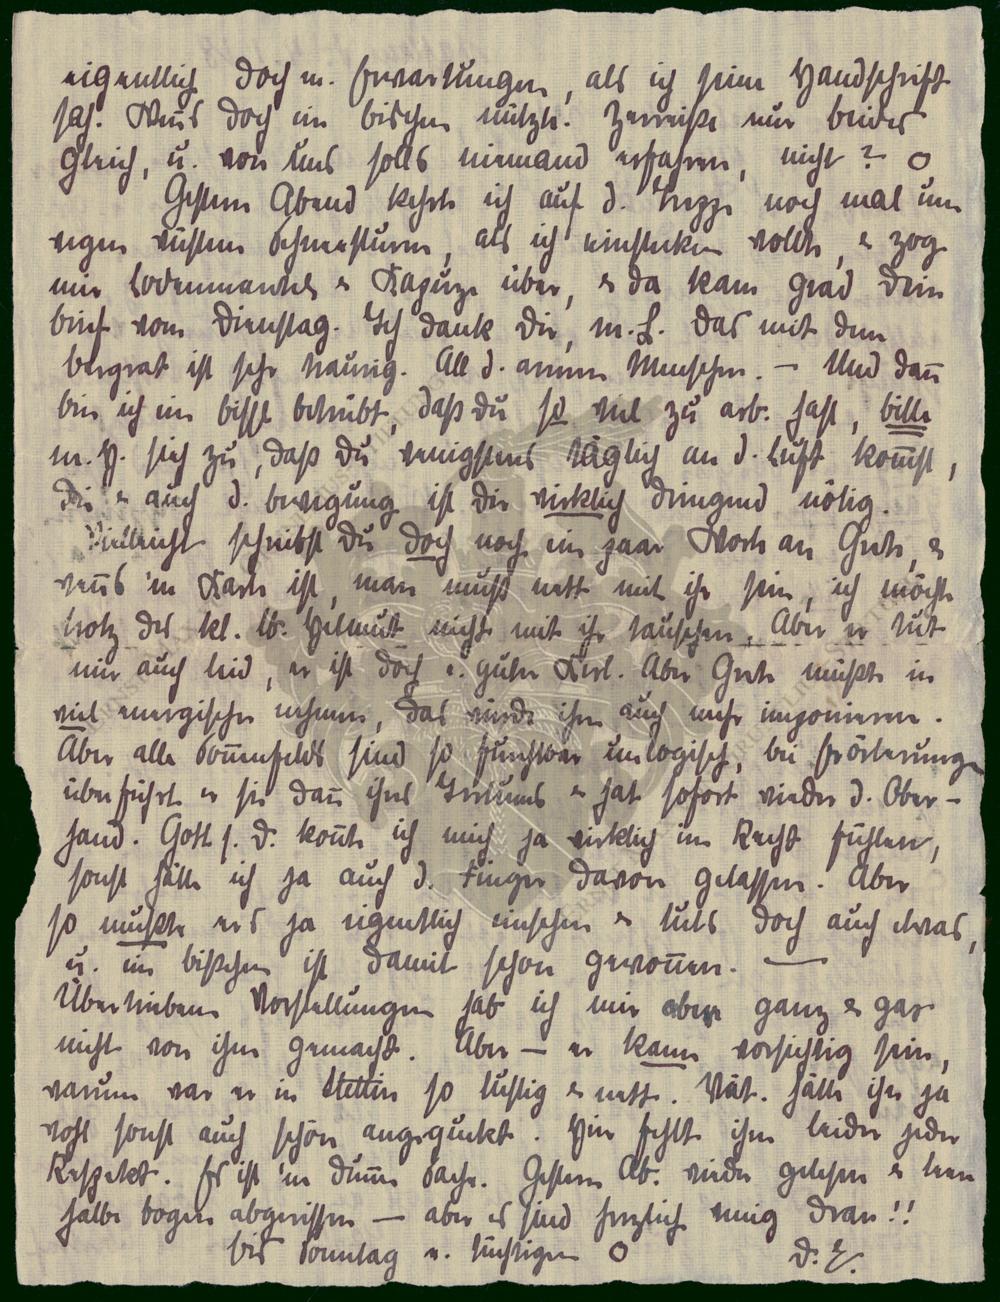 eigentlich doch m. Erwartungen, als ich seine Handschrift
sah. Wenns doch ein bischen nützte. Zerreiße nur beides
gleich, u. von uns solls niemand erfahren, nicht? O
Gestern Abend kehrte ich auf d. Treppe noch mal um
wegen wüsten Schneesturm, als ich einstecken wollte, & zog
mir Lodenmantel & Kapuze über, & da kam grad Dein
Brief vom Dienstag. Ich dank Dir, m. H. Das mit dem
Bergrat ist sehr traurig. All d. armen Menschen. – Und dañ
bin ich ein bissl betrübt, daß du so viel zu arb. hast, bitte
m. H. sieh zu, daß Du wenigstens täglich an d. Luft kom̄st,
die & auch d. Bewegung ist dir wirklich dringend nötig.
Vielleicht schreibst Du doch noch ein paar Worte an Grete, &
weñs 'ne Karte ist, man muß nett mit ihr sein, ich möchte
trotz des kl. lb. Helmut nicht mit ihr tauschen. Aber er tut
mir auch leid, er ist doch e. guter Kerl. Aber Grete müßte in
viel energischer nehmen, das würde ihm auch mehr imponieren.
Aber alle Som̄erfelds sind so furchtbar unlogisch, bei Erörterungen
überführt er sie dañ ihres Irrtums & hat sofort wieder d. Ober-
hand. Gott s. D. koñte ich mich ja wirklich im Recht fühlen,
sonst hätte ich ja auch d. Finger davon gelassen. Aber
so mußte ers ja eigentlich einsehen & tuts doch auch etwas,
u. ein bißchen ist damit schon gewoñen. —
Übertriebene Vorstellungen hab ich mir aber ganz & gar
nicht von ihm gemacht. Aber – er kann vorsichtig sein,
warum war er in Stettin so lustig & nett. Vat. hätte ihn ja
wohl sonst auch schön angeguckt. Hier fehlt ihm leider jeder
Respekt. Es ist 'ne dum̄e Sache. Gestern Ab. wieder gelesen &
halbe Bogen abgerissen – aber es sind herzlich wenig dran!!
Bis Sonntag e. tüchtigen O D. E.